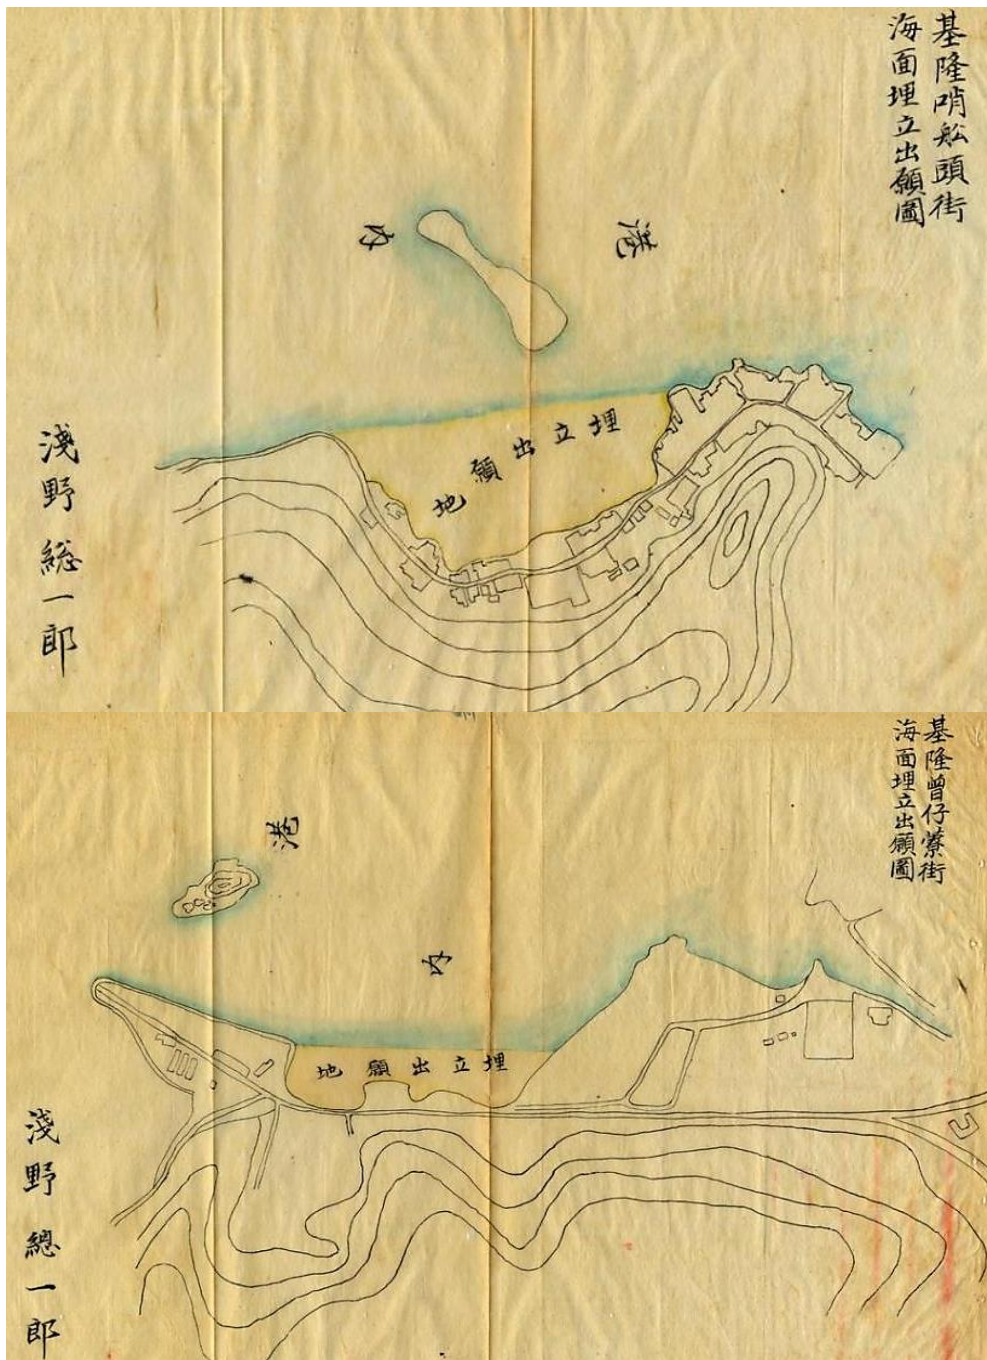 基隆哨船頭街
海面埋立出願圖
港內
埋立出願地
淺野総一郎
基隆曾仔藔街
海面埋立出願圖
港內
埋立出願地
淺野總一郎